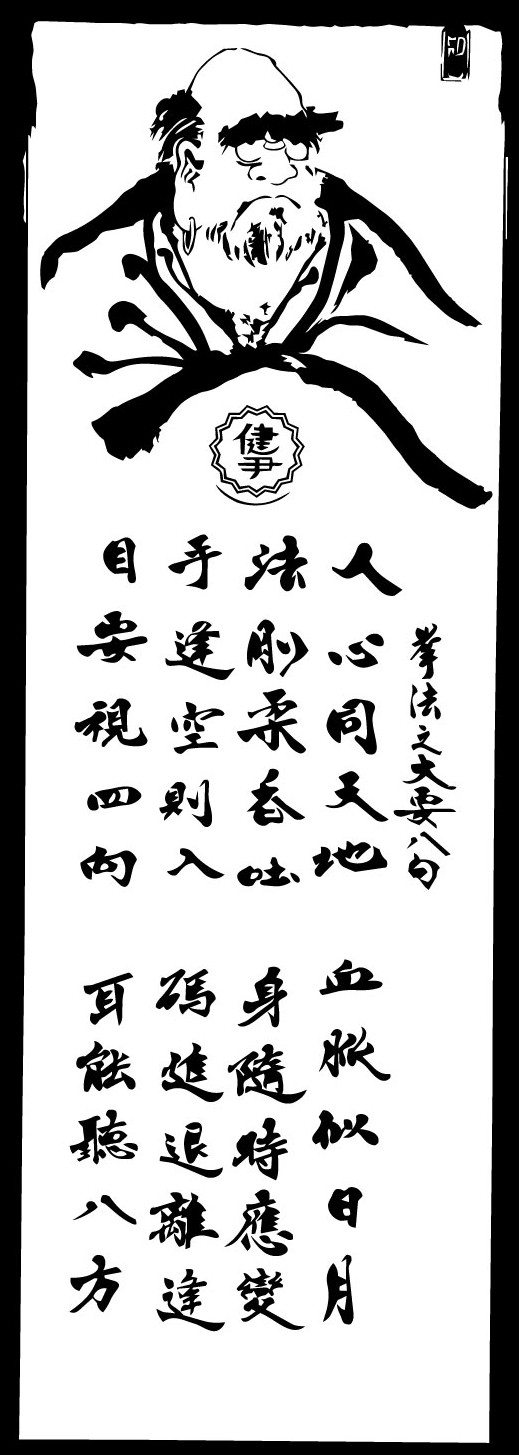 健尹
拳法之大要八句
人心同天地 血脈似日月
法剛柔吞吐 身隨時應變
手逢空則入 碼進退離逢
目要視四向 耳能聽八方